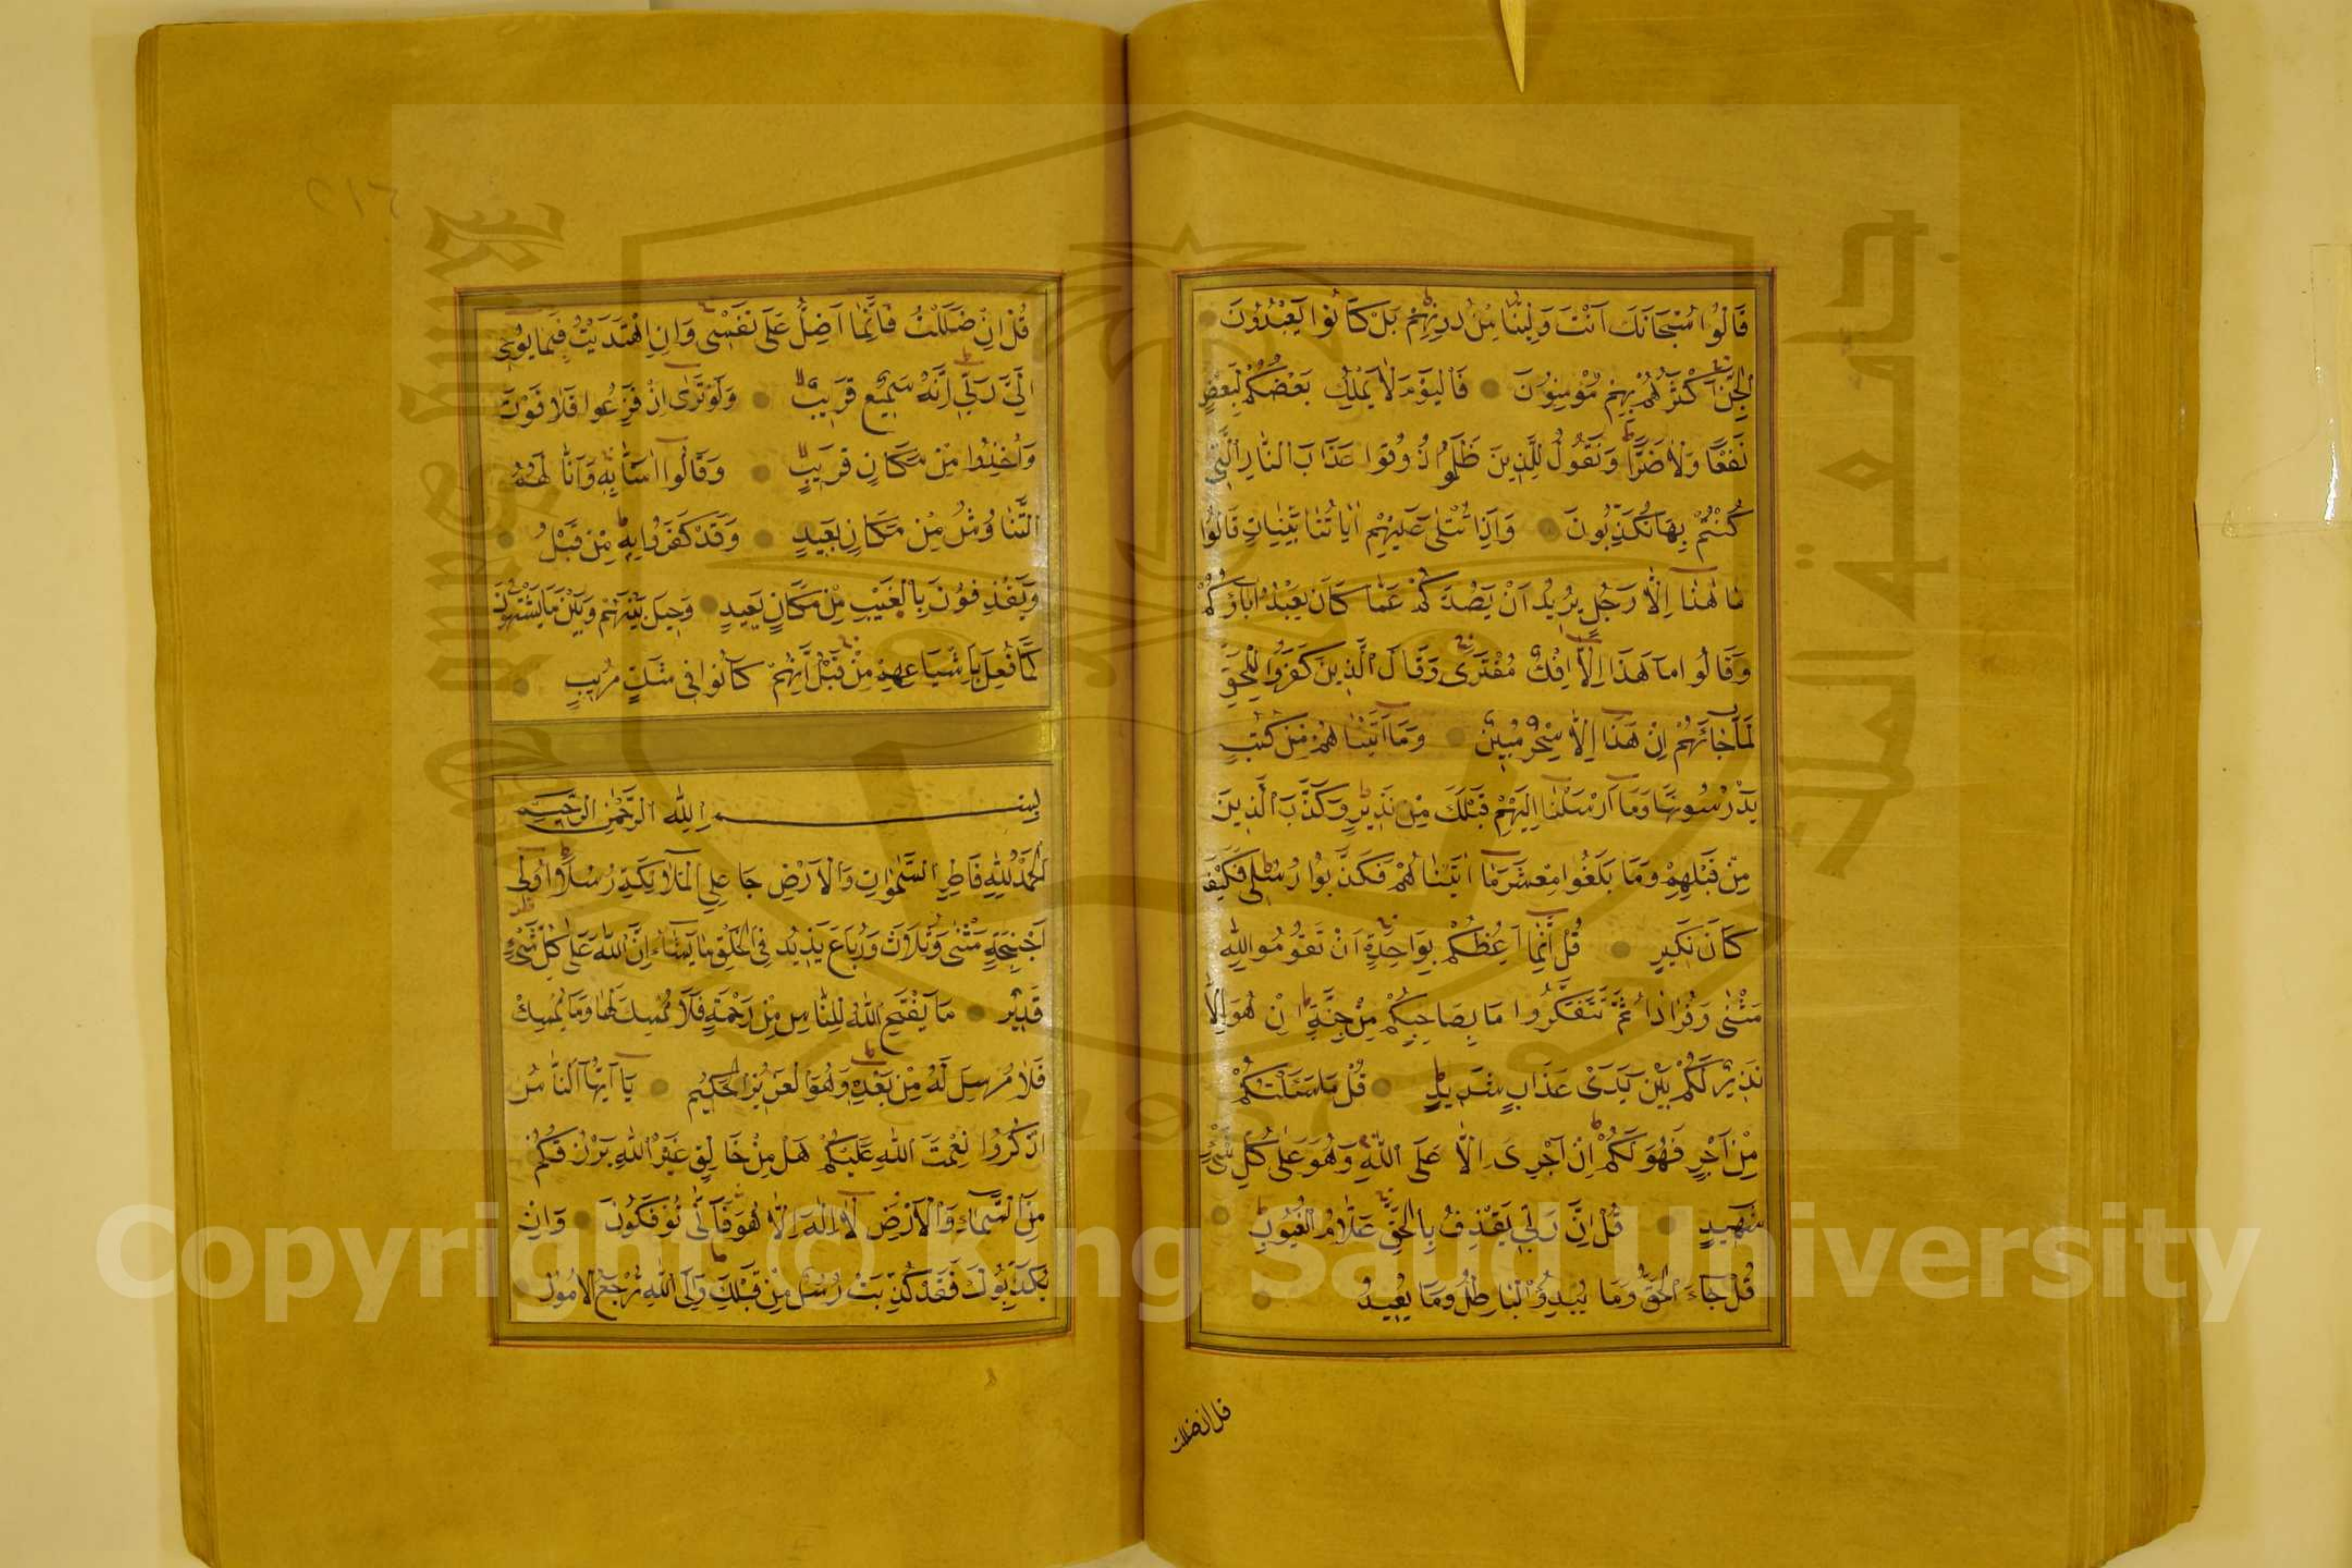 قَالُوا سُبْحَانَكَ اَنْتَ وَلِيُّنَا مِنْ دُونِهِمْ بَلْ كَانُوا يَعْبُدُونَ
الْجِنَّ اَكْثَرُهُمْ بِهِمْ مُؤْمِنُونَ فَالْيَوْمَ لَا يَمْلِكُ بَعْضُكُمْ لِبَعْضٍ
نَفْعًا وَلَا ضَرًّا وَنَقُولُ لِلَّذِينَ ظَلَمُوا ذُوقُوا عَذَابَ النَّارِ الَّتِى
كُنْتُمْ بِهَا تُكَذِّبُونَ وَاِذَا تُتْلٰى عَلَيْهِمْ اٰيَاتُنَا بَيِّنَاتٍ قَالُوا
مَا هٰذَا اِلَّا رَجُلٌ يُرِيدُ اَنْ يَصُدَّكُمْ عَمَّا كَانَ يَعْبُدُ اٰبَاؤُكُمْ
وَقَالُوا مَا هٰذَا اِلَّا اِفْكٌ مُفْتَرًى وَقَالَ الَّذِينَ كَفَرُوا لِلْحَقِّ
لَمَّا جَائَهُمْ اِنْ هٰذَا اِلَّا سِحْرٌ مُبِينٌ وَمَا اٰتَيْنَاهُمْ مِنْ كُتُبٍ
يَدْرُسُونَهَا وَمَا اَرْسَلْنَا اِلَيْهِمْ قَبْلَكَ مِنْ نَذِيرٍ وَكَذَّبَ الَّذِينَ
مِنْ قَبْلِهِمْ وَمَا بَلَغُوا مِعْشَارَ مَا اٰتَيْنَاهُمْ فَكَذَّبُوا رُسُلِى فَكَيْفَ
كَانَ نَكِيرِ قُلْ اِنَّمَا اَعِظُكُمْ بِوَاحِدَةٍ اَنْ تَقُومُوا لِلّٰهِ
مَثْنٰى وَفُرَادٰا ثُمَّ تَتَفَكَّرُوا مَا بِصَاحِبِكُمْ مِنْ جِنَّةٍ اِنْ هُوَ اِلَّا
نَذِيرٌ لَكُمْ بَيْنَ يَدَىْ عَذَابٍ شَدِيدٍ قُلْ مَا سَئَلْتُكُمْ
مِنْ اَجْرٍ فَهُوَ لَكُمْ اِنْ اَجْرِىَ اِلَّا عَلَى اللّٰهِ وَهُوَ عَلٰى كُلِّ شَىْءٍ
شَهِيدٌ قُلْ اِنَّ رَبِّى يَقْذِفُ بِالْحَقِّ عَلَّامُ الْغُيُوبِ
قُلْ جَاءَ الْحَقُّ وَمَا يُبْدِؤُ الْبَاطِلُ وَمَا يُعِيدُ
قل ان ضللت
قُلْ اِنْ ضَلَلْتُ فَاِنَّمَا اَضِلُّ عَلٰى نَفْسِى وَاِنِ اهْتَدَيْتُ فَبِمَا يُوحِى
اِلَىَّ رَبِّى اِنَّهُ سَمِيعٌ قَرِيبٌ وَلَوْ تَرٰى اِذْ فَزِعُوا فَلَا فَوْتَ
وَاُخِذُوا مِنْ مَكَانٍ قَرِيبٍ وَقَالُوا اٰمَنَّا بِهِ وَاَنّٰى لَهُمُ
التَّنَاوُشُ مِنْ مَكَانٍ بَعِيدٍ وَقَدْ كَفَرُوا بِهِ مِنْ قَبْلُ
وَيَقْذِفُونَ بِالْغَيْبِ مِنْ مَكَانٍ بَعِيدٍ وَحِيلَ بَيْنَهُمْ وَبَيْنَ مَا يَشْتَهُونَ
كَمَا فُعِلَ بِاَشْيَاعِهِمْ مِنْ قَبْلُ اِنَّهُمْ كَانُوا فِى شَكٍّ مُرِيبٍ
بِسْمِ اللّٰهِ الرَّحْمٰنِ الرَّحِيمِ
اَلْحَمْدُ لِلّٰهِ فَاطِرِ السَّمٰوَاتِ وَالْاَرْضِ جَاعِلِ الْمَلَائِكَةِ رُسُلًا اُولِى
اَجْنِحَةٍ مَثْنٰى وَثُلَاثَ وَرُبَاعَ يَزِيدُ فِى الْخَلْقِ مَا يَشَاءُ اِنَّ اللّٰهَ عَلٰى كُلِّ شَىْءٍ
قَدِيرٌ مَا يَفْتَحِ اللّٰهُ لِلنَّاسِ مِنْ رَحْمَةٍ فَلَا مُمْسِكَ لَهَا وَمَا يُمْسِكْ
فَلَا مُرْسِلَ لَهُ مِنْ بَعْدِهِ وَهُوَ الْعَزِيزُ الْحَكِيمُ يَا اَيُّهَا النَّاسُ
اذْكُرُوا نِعْمَتَ اللّٰهِ عَلَيْكُمْ هَلْ مِنْ خَالِقٍ غَيْرُ اللّٰهِ يَرْزُقُكُمْ
مِنَ السَّمَاءِ وَالْاَرْضِ لَا اِلٰهَ اِلَّا هُوَ فَاَنّٰى تُؤْفَكُونَ وَاِنْ
يُكَذِّبُوكَ فَقَدْ كُذِّبَتْ رُسُلٌ مِنْ قَبْلِكَ وَاِلَى اللّٰهِ تُرْجَعُ الْاُمُورُ
Copyright © King Saud University